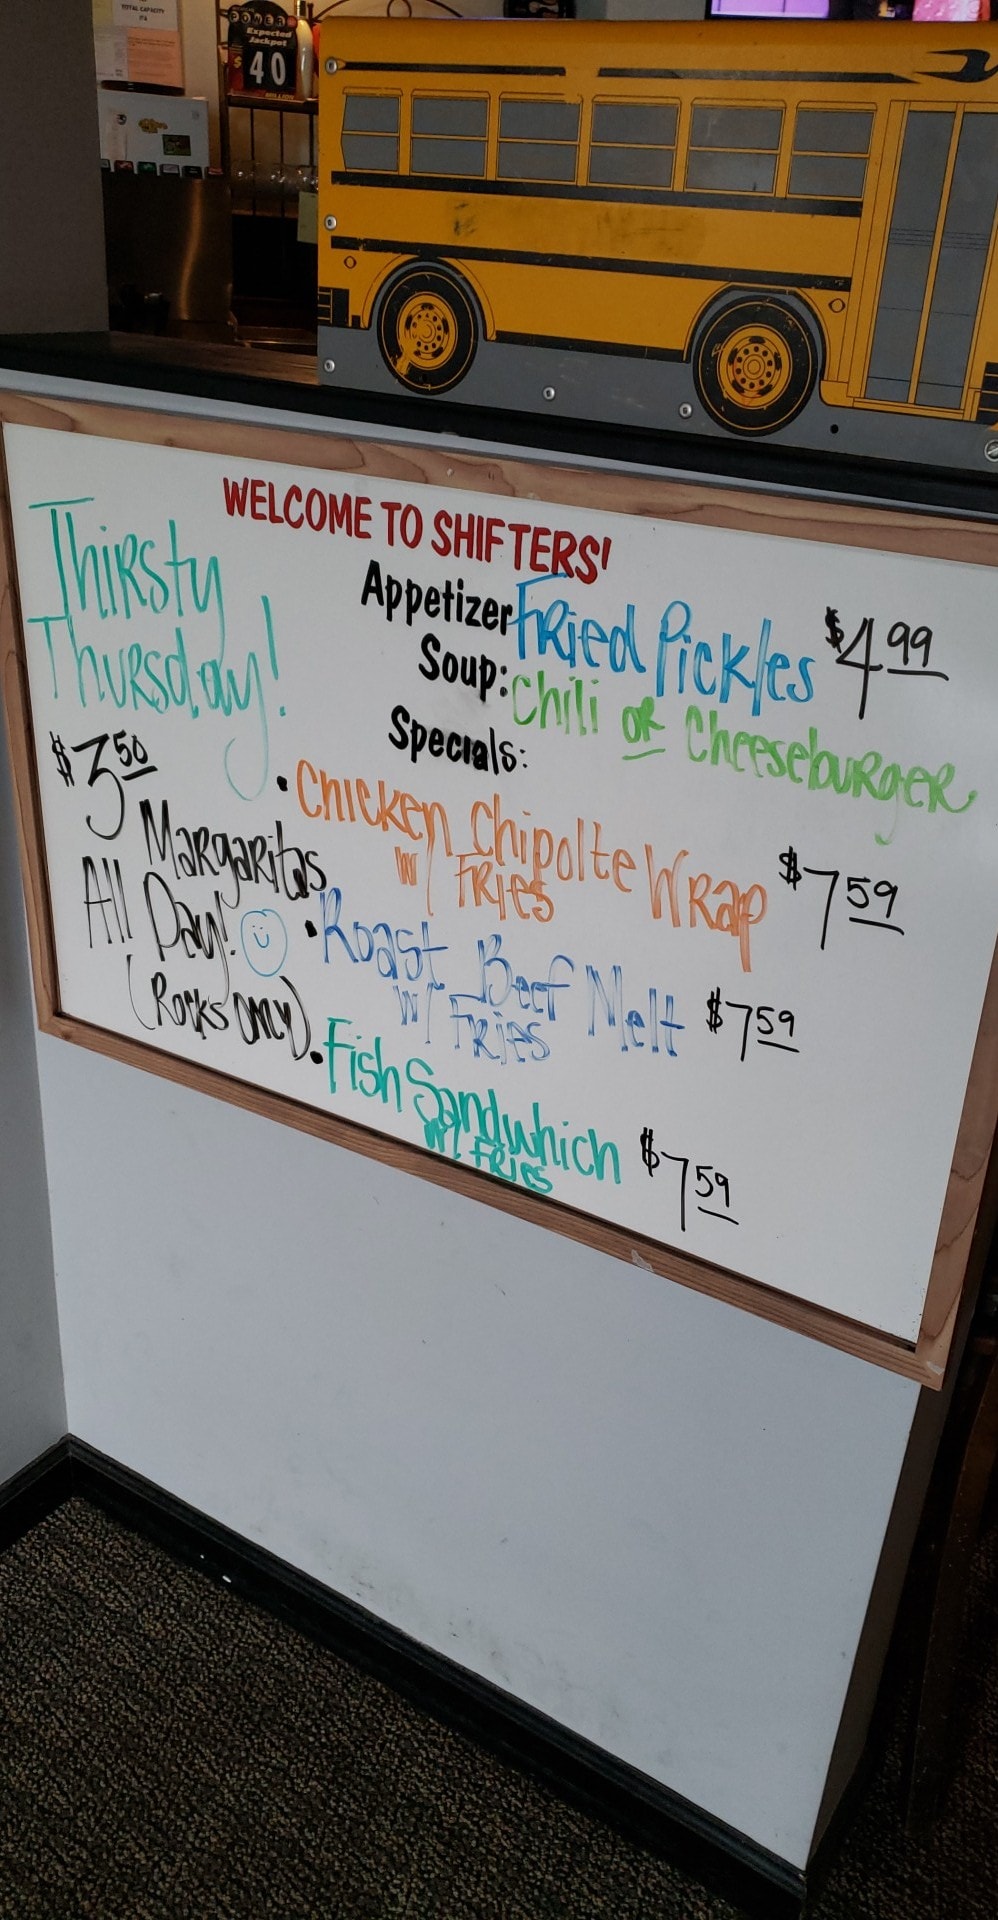 TOTAL CAPACITY
POWER
Expected
Jackpot
$40
WELCOME TO SHIFTERS!
Thirsty
Thursday!
$3.50
Margaritas
All Day!
(Rocks Only)
Appetizer Fried Pickles $4.99
Soup: Chili or Cheeseburger
Specials:
• Chicken Chipolte Wrap $7.59
w/ Fries
• Roast Beef Melt $7.59
w/ Fries
• Fish Sandwhich $7.59
w/ Fries